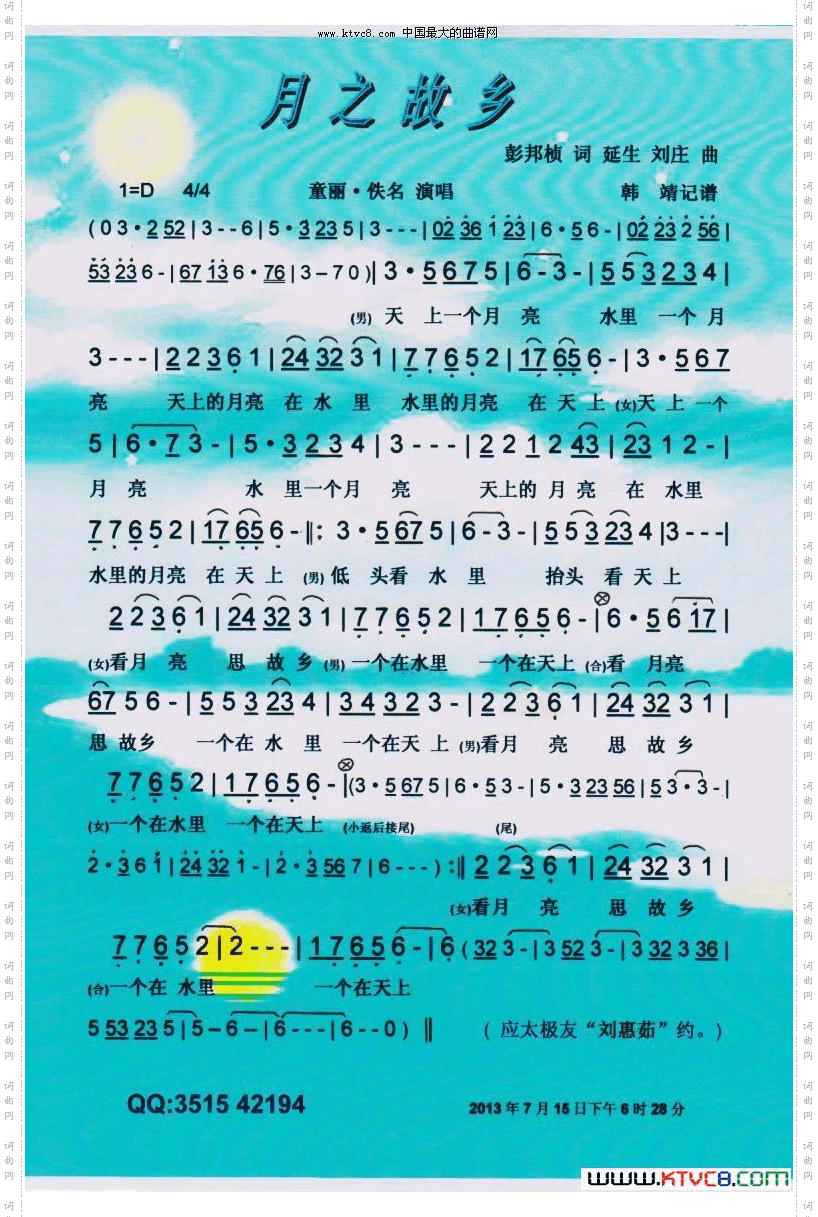 www.ktvc8.com 中国最大的曲谱网
月之故乡
彭邦桢 词 延生 刘庄 曲
1=D 4/4 童丽·佚名 演唱 韩 靖记谱
(0 3·2 52|3--6|5·3 23 5|3---|02 36 1 23|6·5 6-|02 23 2 56|
53 23 6-|67 13 6·76|3-7 0)|3·5 6 7 5|6-3-|5 5 3 2 3 4|
(男)天 上一个月 亮 水里 一个 月
3---|2 2 3 6 1|24 32 3 1|7 7 6 5 2|17 65 6-|3·5 6 7
亮 天上的月亮 在 水 里 水里的月亮 在 天 上 (女)天 上 一个
5|6·7 3-|5·3 2 3 4|3---|2 2 1 2 43|23 1 2-|
月 亮 水 里一个月 亮 天上的 月 亮 在 水里
7 7 6 5 2|17 65 6-‖:3·5 67 5|6-3-|5 5 3 23 4|3---|
水里的月亮 在 天 上 (男)低 头看 水 里 抬头 看 天 上
2 2 3 6 1|24 32 3 1|7 7 6 5 2|1 7 6 5 6-|6·5 6 17|
(女)看月 亮 思 故 乡 (男)一个在水里 一个在天上 (合)看 月亮
67 5 6-|5 5 3 23 4|3 4 3 2 3-|2 2 3 6 1|24 32 3 1|
思 故乡 一个在 水 里 一个在天 上 (男)看月 亮 思 故 乡
7 7 6 5 2|1 7 6 5 6-|(3·5 67 5|6·5 3-|5·3 23 56|5 3·3-|
(女)一个在水里 一个在天上 (小返后接尾) (尾)
2·3 6 1|24 32 1-|2·3 56 7|6---):‖2 2 3 6 1|24 32 3 1|
(女)看月 亮 思 故 乡
7 7 6 5 2|2---|1 7 6 5 6-|6(32 3-|3 52 3-|3 32 3 36|
(合)一个在 水里 一个在天上
5 53 23 5|5-6-|6---|6--0)‖ (应太极友“刘惠茹”约。)
QQ:3515 42194 2013年7月15日下午6时28分
www.KTVC8.COM
词曲网